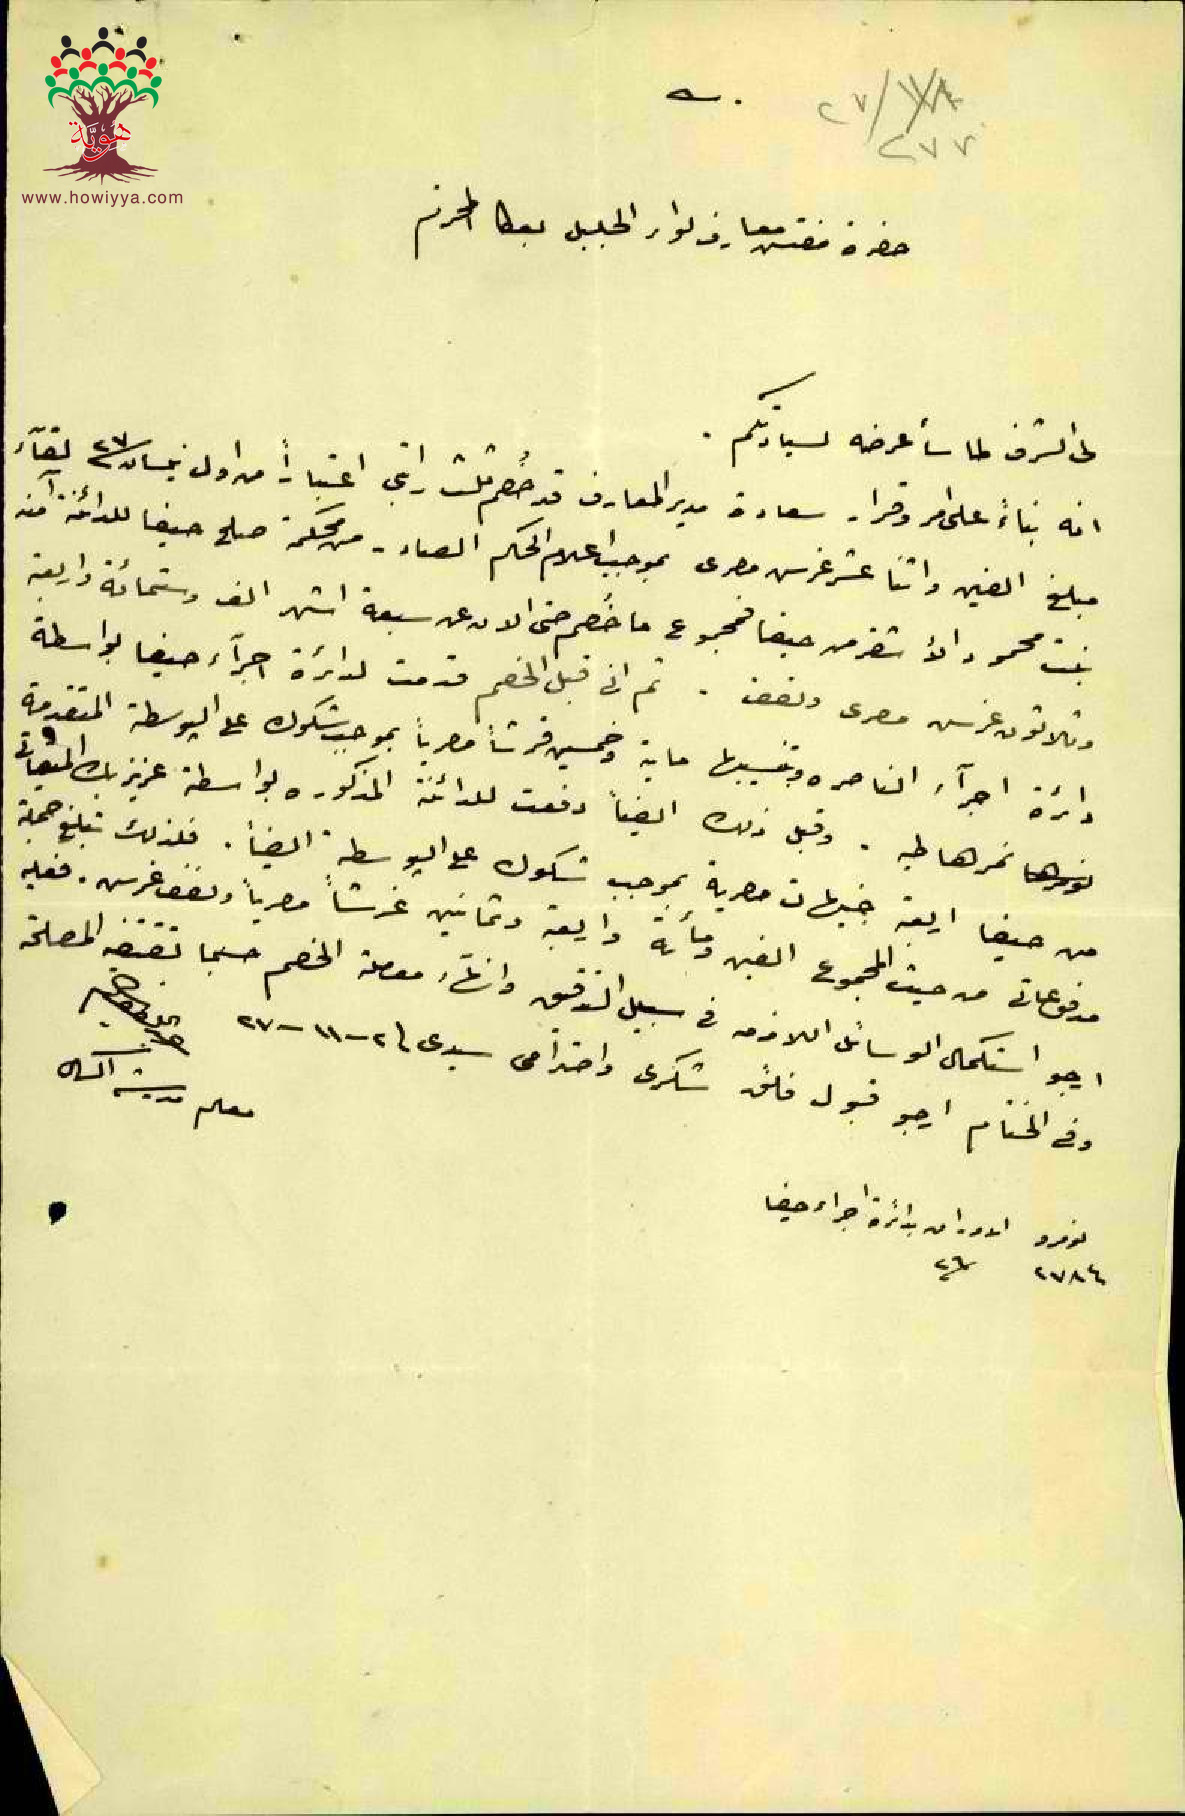 هوية
www.howiyya.com
٢٧٧
حضرة مفتش معارف لواء الجليل بعكا المحترم
لي الشرف لما سأعرضه لسيادتكم .
انه بناءً على امر وقرار سعادة مدير المعارف قد خُصم ثلث راتبي اعتباراً من اول نيسان ٢٧ لقآء
مبلغ الفين واثنا عشر غرش مصري بموجب اعلام الحكم الصادر من محكمة صلح حيفا للدائنة آمنه
بنت محمود الأشقر من حيفا فمجموع ما خُصم حتى الان عن سبعة اشهر الف وستمائة واربعة
وثلاثون غرش مصري ونصف . ثم اني قبل الخصم قدمت لدائرة اجرآء حيفا بواسطة
دائرة اجرآء الناصره وبنفسها ماية وخمسين قرشاً مصرياً بموجب شكوك على البوسطة المتقدمة
نمرها طيه . وقبل ذلك ايضاً دفعت للدائنة المذكوره بواسطة عزيز بك
من حيفا اربعة جنيهات مصرية بموجب شكوك على البوسطة ايضاً . فلذلك تبلغ جملة
مدفوعاتي من حيث المجموع الفين ومائة واربعة وثمانين غرشاً مصرياً ونصف غرش . فعليه
ارجو استكمال الوسائل اللازمه في سبيل التدقيق وانهاء معاملة الخصم حسبما تقتضيه المصلحة
وفي الختام ارجو قبول فائق شكري واحترامي سيدي ٢١-١١-٢٧
معلم مدرسة
نومرو الاوراق بدائرة اجراء حيفا
٢٧٨٤ ٢٦